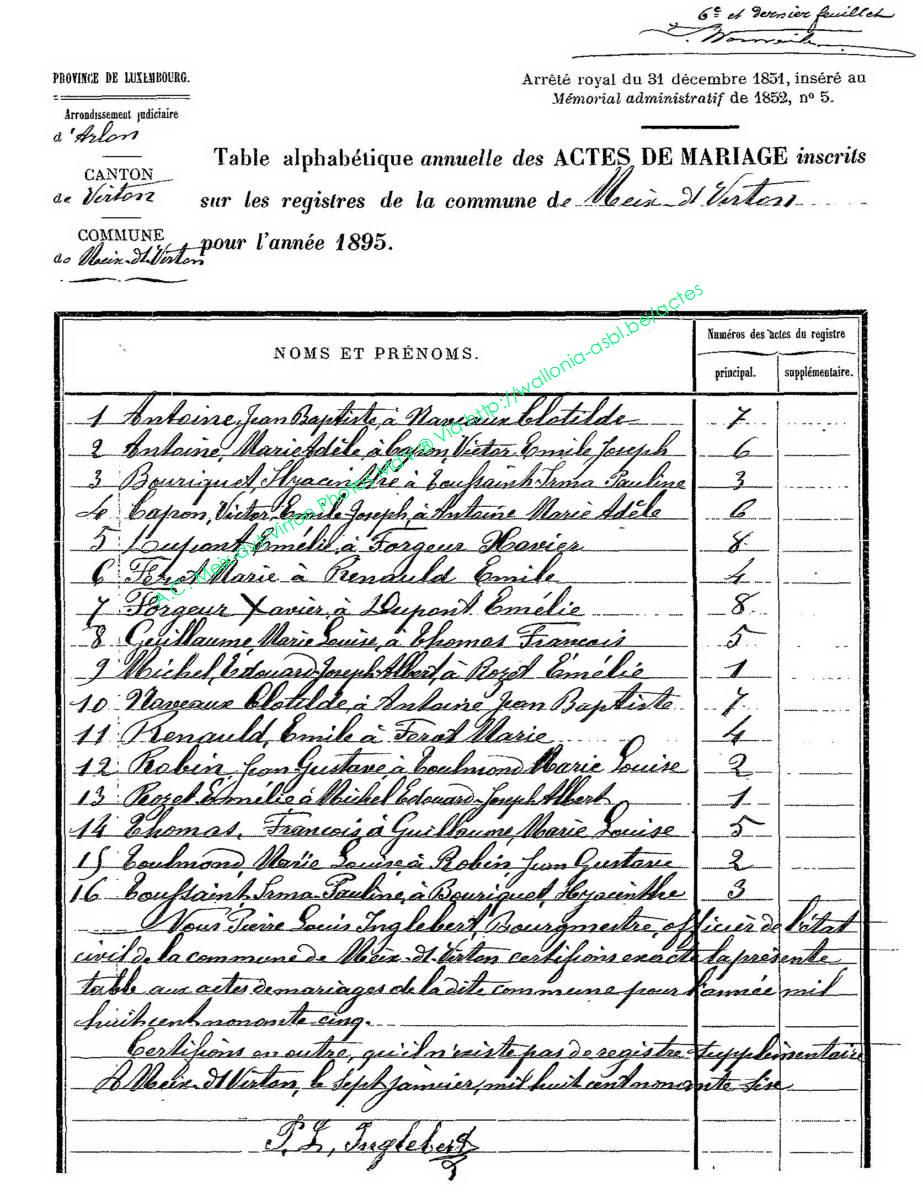 6e et dernier feuillet
PROVINCE DE LUXEMBOURG.
Arrondissement judiciaire
d'Arlon
CANTON
de Virton
COMMUNE
de Meix-dt-Virton
Arrêté royal du 31 décembre 1851, inséré au
Mémorial administratif de 1852, no 5.
Table alphabétique annuelle des ACTES DE MARIAGE inscrits
sur les registres de la commune de Meix-dt Virton
pour l'année 1895.
NOMS ET PRÉNOMS.
Numéros des actes du registre
principal. supplémentaire.
1 Antoine, Jean Baptiste à Naveaux Clotilde 7
2 Antoine, Marie Adèle à Capon, Victor Emile Joseph 6
3 Bouriquet, Hyacinthe à Toussaint Irma Pauline 3
4 Capon, Victor Emile Joseph, à Antoine Marie Adèle 6
5 Dupont Emélie, à Forgeur Xavier 8
6 Férot Marie à Renauld Emile 4
7 Forgeur Xavier, à Dupont Emélie 8
8 Guillaume, Marie Louise, à Thomas François 5
9 Michel, Edouard-Joseph Albert, à Rozet Emélie 1
10 Naveaux Clotilde, à Antoine Jean Baptiste 7
11 Renauld, Emile à Ferot Marie 4
12 Robin, Jean Gustave à Toulmond Marie Louise 2
13 Rozet Emélie à Michel Edouard-Joseph Albert 1
14 Thomas, François à Guillaume, Marie Louise 5
15 Toulmond, Marie Louise, à Robin, Jean Gustave 2
16 Toussaint, Irma-Pauline, à Bouriquet, Hyacinthe 3
Nous Pierre Louis Inglebert Bourgmestre, officier de l'état
civil de la commune de Meix-dt-Virton certifions exacte la présente
table aux actes de mariages de la dite commune pour l'année mil
huit cent nonante cinq.
Certifions en outre, qu'il n'existe pas de registre supplémentaire
A Meix-dt Virton, le sept janvier, mil huit cent nonante sise
P. L. Inglebert
A.C. Meix-dvt-Virton Photos MdV ® Via http://wallonia-asbl.be/actes